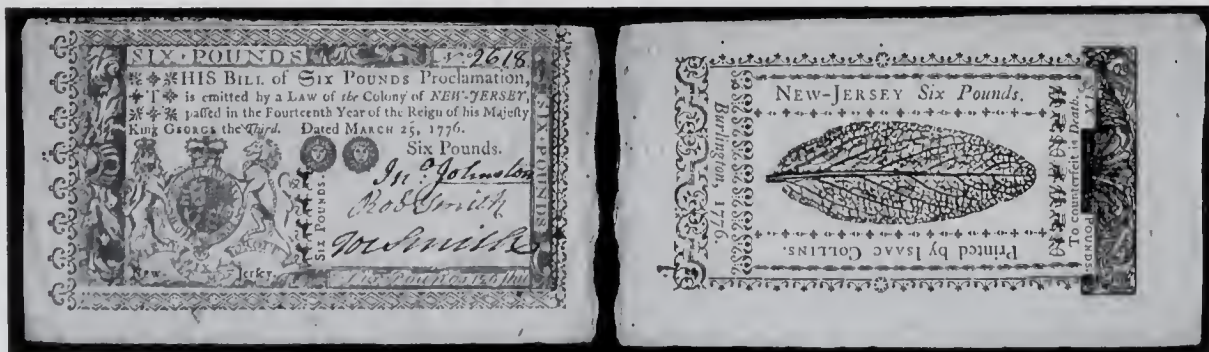 SIX·POUNDS No 2618
THIS BILL of SIX POUNDS Proclamation,
is emitted by a LAW of the Colony of NEW-JERSEY,
paſſed in the Fourteenth Year of the Reign of his Majeſty
King GEORGE the Third. Dated MARCH 25, 1776.
Six Pounds.
Jno. Johnston
Rob Smith
Jos Smith
SIX POUNDS
SIX POUNDS
New- Jerſey.
NEW-JERSEY Six Pounds.
Burlington, 1776.
Printed by ISAAC COLLINS.
To counterfeit is Death.
POUNDS